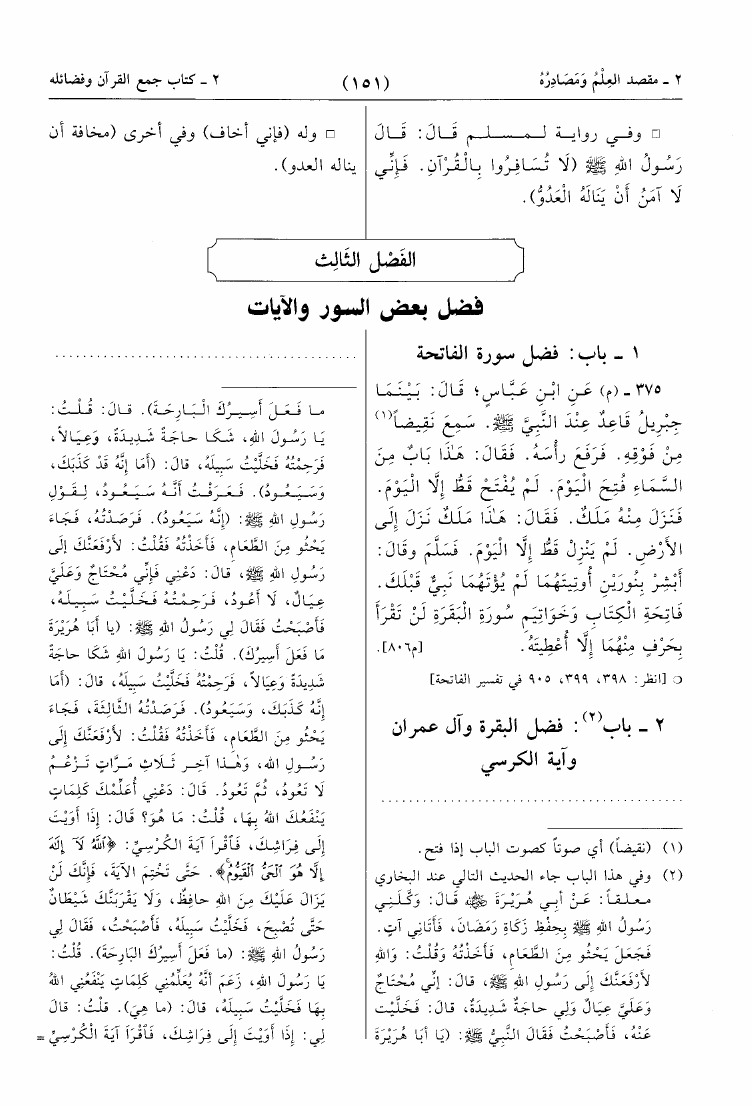 ٢ ـ مقصد العِلْمُ وَمَصَادِرُهُ
(١٥١)
٢ ـ كتاب جمع القرآن وفضائله
□ وفـي روايـة لـمـسـلـم قَـالَ: قَـالَ
رَسُـولُ اللهِ ﷺ (لَا تُـسَـافِـرُوا بِـالْـقُـرْآنِ. فَـإِنِّـي
لَا آمَنُ أَنْ يَنَالَهُ الْعَدُوُّ).
□ وله (فإني أخاف) وفي أخرى (مخافة أن
يناله العدو).
الفَصْل الثَالِث
فضل بعض السور والآيات
١ ـ باب: فضل سورة الفاتحة
٣٧٥ ـ (م) عَـنِ ابْـنِ عَـبَّـاسٍ؛ قَـالَ: بَـيْـنَـمَـا
جِبْرِيلُ قَاعِدٌ عِنْدَ النَّبِيِّ ﷺ. سَمِعَ نَقِيضاً(١)
مِنْ فَوْقِهِ. فَرَفَعَ رَأْسَهُ. فَقَالَ: هَـٰذَا بَابٌ مِنَ
السَّمَاءِ فُتِحَ الْيَوْمَ. لَمْ يُفْتَحْ قَطُّ إِلَّا الْيَوْمَ.
فَنَزَلَ مِنْهُ مَلَكٌ. فَقَالَ: هَـٰذَا مَلَكٌ نَزَلَ إِلَى
الأَرْضِ. لَمْ يَنْزِلْ قَطُّ إِلَّا الْيَوْمَ. فَسَلَّمَ وقَالَ:
أَبْشِرْ بِنُورَيْنِ أُوتِيتَهُمَا لَمْ يُؤْتَهُمَا نَبِيٌّ قَبْلَكَ.
فَاتِحَةُ الْكِتَابِ وَخَوَاتِيمُ سُورَةِ الْبَقَرَةِ لَنْ تَقْرَأَ
بِحَرْفٍ مِنْهُمَا إِلَّا أُعْطِيتَهُ. [م٨٠٦].
○ [انظر: ٣٩٨، ٣٩٩، ٩٠٥ في تفسير الفاتحة]
٢ ـ باب(٢): فضل البقرة وآل عمران
وآية الكرسي
(١) (نقيضاً) أي صوتاً كصوت الباب إذا فتح.
(٢) وفي هذا الباب جاء الحديث التالي عند البخاري
معلقاً: عَنْ أَبِي هُرَيْرَةَ رضي الله عنه قَالَ: وَكَّلَنِي
رَسُولُ اللهِ ﷺ بِحِفْظِ زَكَاةِ رَمَضَانَ، فَأَتَانِي آتٍ.
فَجَعَلَ يَحْثُو مِنَ الطَّعَامِ، فَأَخَذْتُهُ وَقُلْتُ: وَاللهِ
لأَرْفَعَنَّكَ إِلَى رَسُولِ اللهِ ﷺ، قالَ: إِنِّي مُحْتَاجٌ
وَعَلَيَّ عِيَالٌ وَلِي حاجَةٌ شَدِيدَةٌ، قالَ: فَخَلَّيْتُ
عَنْهُ، فَأَصْبَحْتُ فَقَالَ النَّبِيُّ ﷺ: (يَا أَبَا هُرَيْرَةَ
ما فَعَلَ أَسِيرُكَ الْبَارِحَةَ). قالَ: قُلْتُ:
يَا رَسُولَ اللهِ، شَكَا حاجَةً شَدِيدَةً، وَعِيَالاً،
فَرَحِمْتُهُ فَخَلَّيْتُ سَبِيلَهُ، قالَ: (أَمَا إِنَّهُ قَدْ كَذَبَكَ،
وَسَيَعُودُ). فَعَرَفْتُ أَنَّهُ سَيَعُودُ، لِقَوْلِ
رَسُولِ اللهِ ﷺ: (إِنَّهُ سَيَعُودُ). فَرَصَدْتُهُ، فَجَاءَ
يَحْثُو مِنَ الطَّعَامِ، فَأَخَذْتُهُ فَقُلْتُ: لأَرْفَعَنَّكَ إِلَى
رَسُولِ اللهِ ﷺ، قالَ: دَعْنِي فَإِنِّي مُحْتَاجٌ وَعَلَيَّ
عِيَالٌ، لَا أَعُودُ، فَرَحِمْتُهُ فَخَلَّيْتُ سَبِيلَهُ،
فَأَصْبَحْتُ فَقَالَ لِي رَسُولُ اللهِ ﷺ: (يا أَبَا هُرَيْرَةَ
مَا فَعَلَ أَسِيرُكَ). قُلْتُ: يَا رَسُولَ اللهِ شَكَا حاجَةً
شَدِيدَةً وَعِيَالاً، فَرَحِمْتُهُ فَخَلَّيْتُ سَبِيلَهُ، قالَ: (أَمَا
إِنَّهُ كَذَبَكَ، وَسَيَعُودُ). فَرَصَدْتُهُ الثَّالِثَةَ، فَجَاءَ
يَحْثُو مِنَ الطَّعَامِ، فَأَخَذْتُهُ فَقُلْتُ: لأَرْفَعَنَّكَ إِلَى
رَسُولِ اللهِ، وَهَـٰذَا آخِـرِ ثَـلَاثِ مَـرَّاتٍ تَـزْعُـمُ
لَا تَعُودُ، ثُمَّ تَعُودُ. قَالَ: دَعْنِي أُعَلِّمْكَ كَلِمَاتٍ
يَنْفَعُكَ اللهُ بِهَا، قُلْتُ: مَا هُوَ؟ قَالَ: إِذَا أَوَيْتَ
إِلَى فِرَاشِكَ، فَاقْرَأْ آيَةَ الْكُرْسِيِّ: ﴿اللَّهُ لَآ إِلَٰهَ
إِلَّا هُوَ الْحَىُّ الْقَيُّومُ﴾. حَتَّى تَخْتِمَ الآيَةَ، فَإِنَّكَ لَنْ
يَزَالَ عَلَيْكَ مِنَ اللهِ حافِظٌ، وَلَا يَقْرَبَنَّكَ شَيْطَانٌ
حَتَّى تُصْبِحَ، فَخَلَّيْتُ سَبِيلَهُ، فَأَصْبَحْتُ، فَقَالَ لِي
رَسُولُ اللهِ ﷺ: (ما فَعَلَ أَسِيرُكَ الْبَارِحَةَ). قُلْتُ:
يَا رَسُولَ اللهِ، زَعَمَ أَنَّهُ يُعَلِّمُنِي كَلِمَاتٍ يَنْفَعُنِي اللهُ
بِهَا فَخَلَّيْتُ سَبِيلَهُ، قالَ: (ما هِيَ). قلْتُ: قالَ
لِي: إِذَا أَوَيْتَ إِلَى فِرَاشِكَ، فَاقْرَأْ آيَةَ الْكُرْسِيِّ =